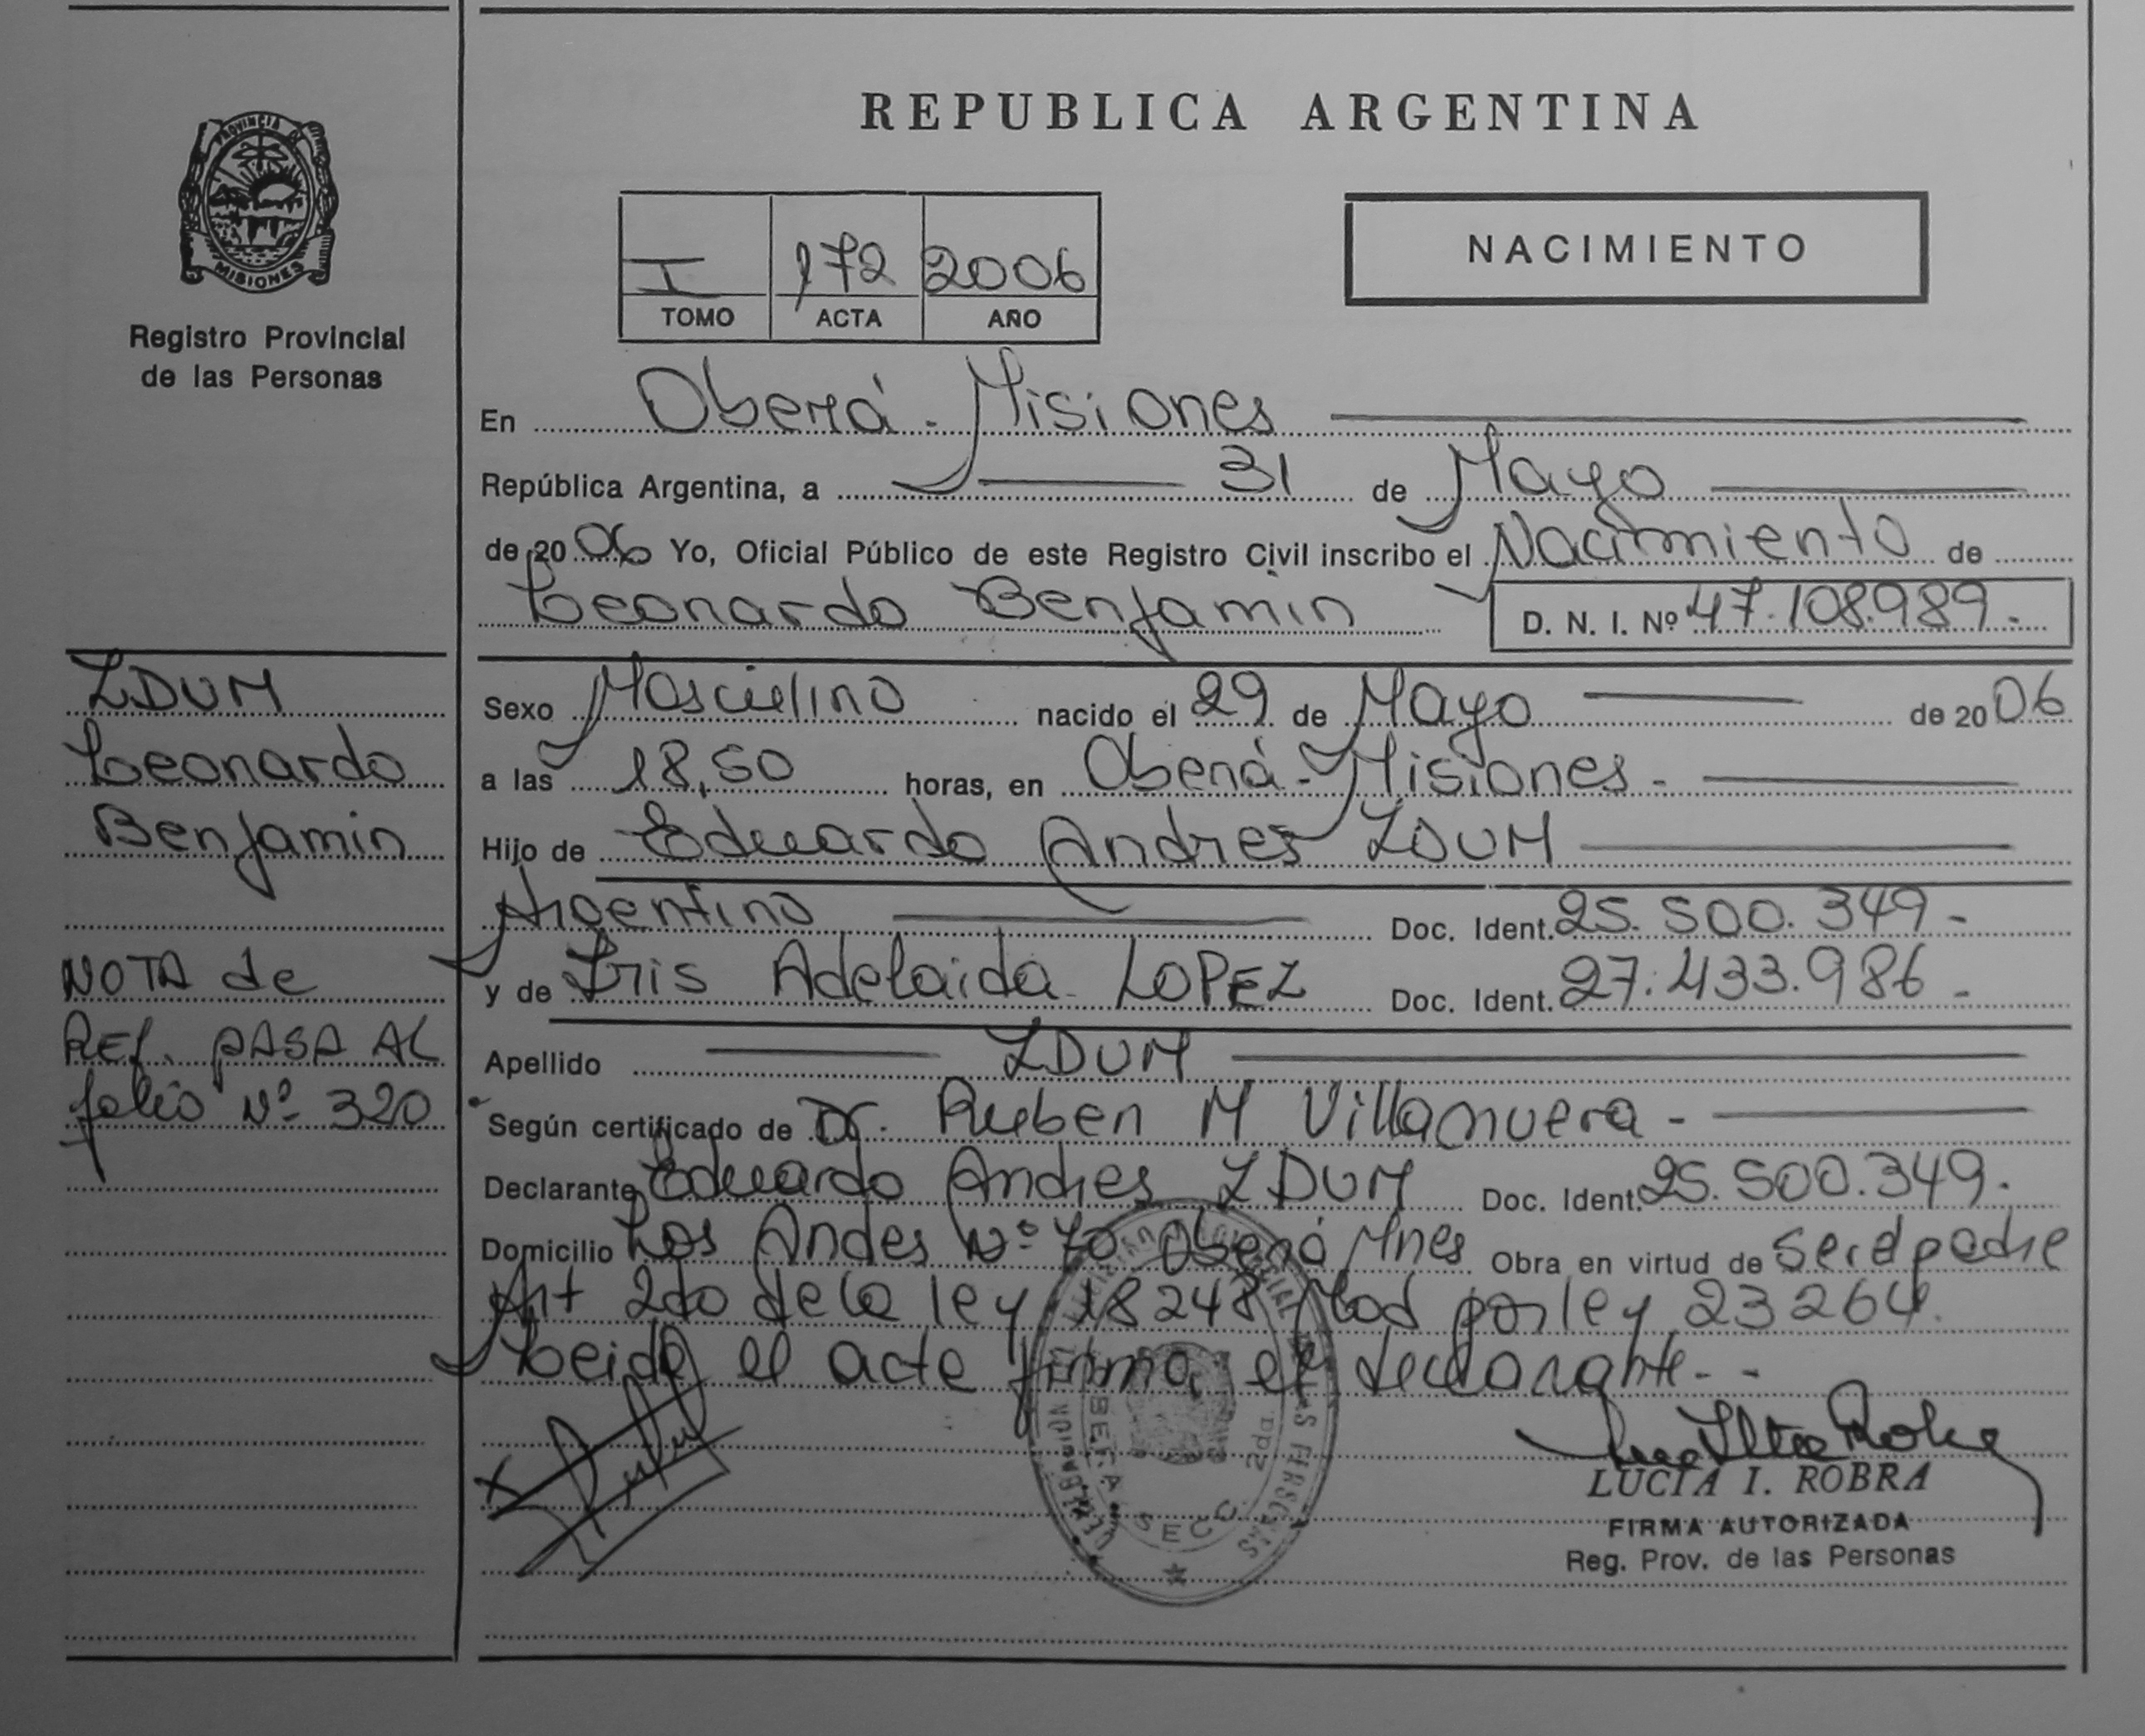 REPUBLICA ARGENTINA
PROVINCIA
MISIONES
Registro Provincial
de las Personas
I 172 2006
TOMO ACTA AÑO
NACIMIENTO
En Oberá - Misiones
República Argentina, a 31 de Mayo
de 2006 Yo, Oficial Público de este Registro Civil inscribo el Nacimiento de
Leonardo Benjamin D. N. I. Nº 47.108.989.-
ZDUM
Leonardo
Benjamin
NOTA de
Ref. PASA AL
folio Nº 320
Sexo Masculino nacido el 29 de Mayo de 2006
a las 18,50 horas, en Oberá - Misiones -
Hijo de Eduardo Andres ZDUM
Argentino Doc. Ident. 25.500.349-
y de Iris Adelaida LOPEZ Doc. Ident. 27.433.986-
Apellido ZDUM
Según certificado de Dr. Ruben M Villanueva -
Declarante Eduardo Andres ZDUM Doc. Ident. 25.500.349.
Domicilio Los Andes Nº 70 Oberá Mnes Obra en virtud de ser el padre
Art 2do de la ley 18248 Mod por ley 23264.
Leido el acta firma el declarante.--
SECC. 2da.
LUCIA I. ROBRA
FIRMA AUTORIZADA
Reg. Prov. de las Personas